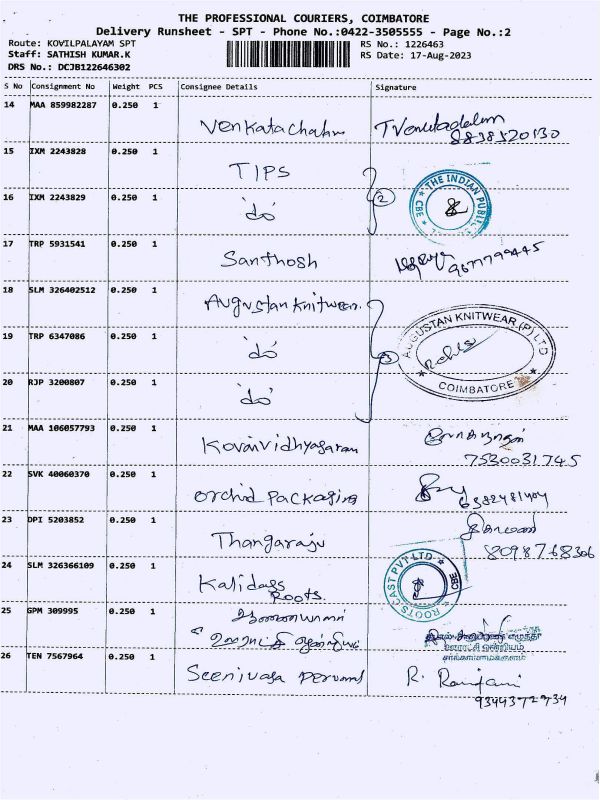 THE PROFESSIONAL COURIERS, COIMBATORE
Delivery Runsheet - SPT - Phone No.:0422-3505555 - Page No.:2
Route: KOVILPALAYAM SPT RS No.: 1226463
Staff: SATHISH KUMAR.K RS Date: 17-Aug-2023
DRS No.: DCJB122646302
S No Consignment No Weight PCS Consignee Details Signature
14 MAA 859982287 0.250 1
Venkatachalm
15 IXM 2243828 0.250 1
TIPS
16 IXM 2243829 0.250 1
do 2 THE INDIAN PUBLIC CBE
17 TRP 5931541 0.250 1
Santhosh
18 SLM 326402512 0.250 1
Augustan Knitween.
19 TRP 6347086 0.250 1
do 3 AUGUSTAN KNITWEAR (P) LTD
COIMBATORE
20 RJP 3200807 0.250 1
do
21 MAA 106057793 0.250 1
Kovaividhyasaram
7530031745
22 SVK 40060370 0.250 1
Orchid Packaging
23 DPI 5203852 0.250 1
Thangaraju 8098768306
24 SLM 326366109 0.250 1
Kalidass ROOTS CAST PVT LTD CBE
Roots.
25 GPM 309995 0.250 1
26 TEN 7567964 0.250 1
Seenivasa Perumal R. Ranjani
9344372734